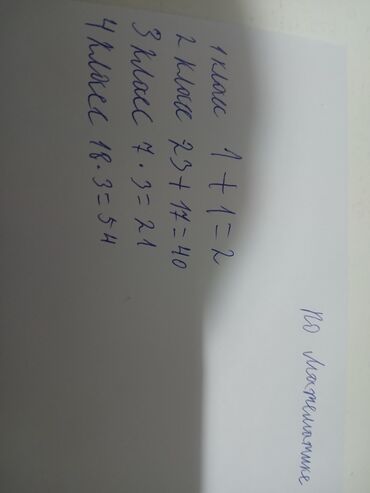 по математике
1 класс 1 + 1 = 2
2 класс 23 + 17 = 40
3 класс 7 · 3 = 21
4 класс 18 · 3 = 54